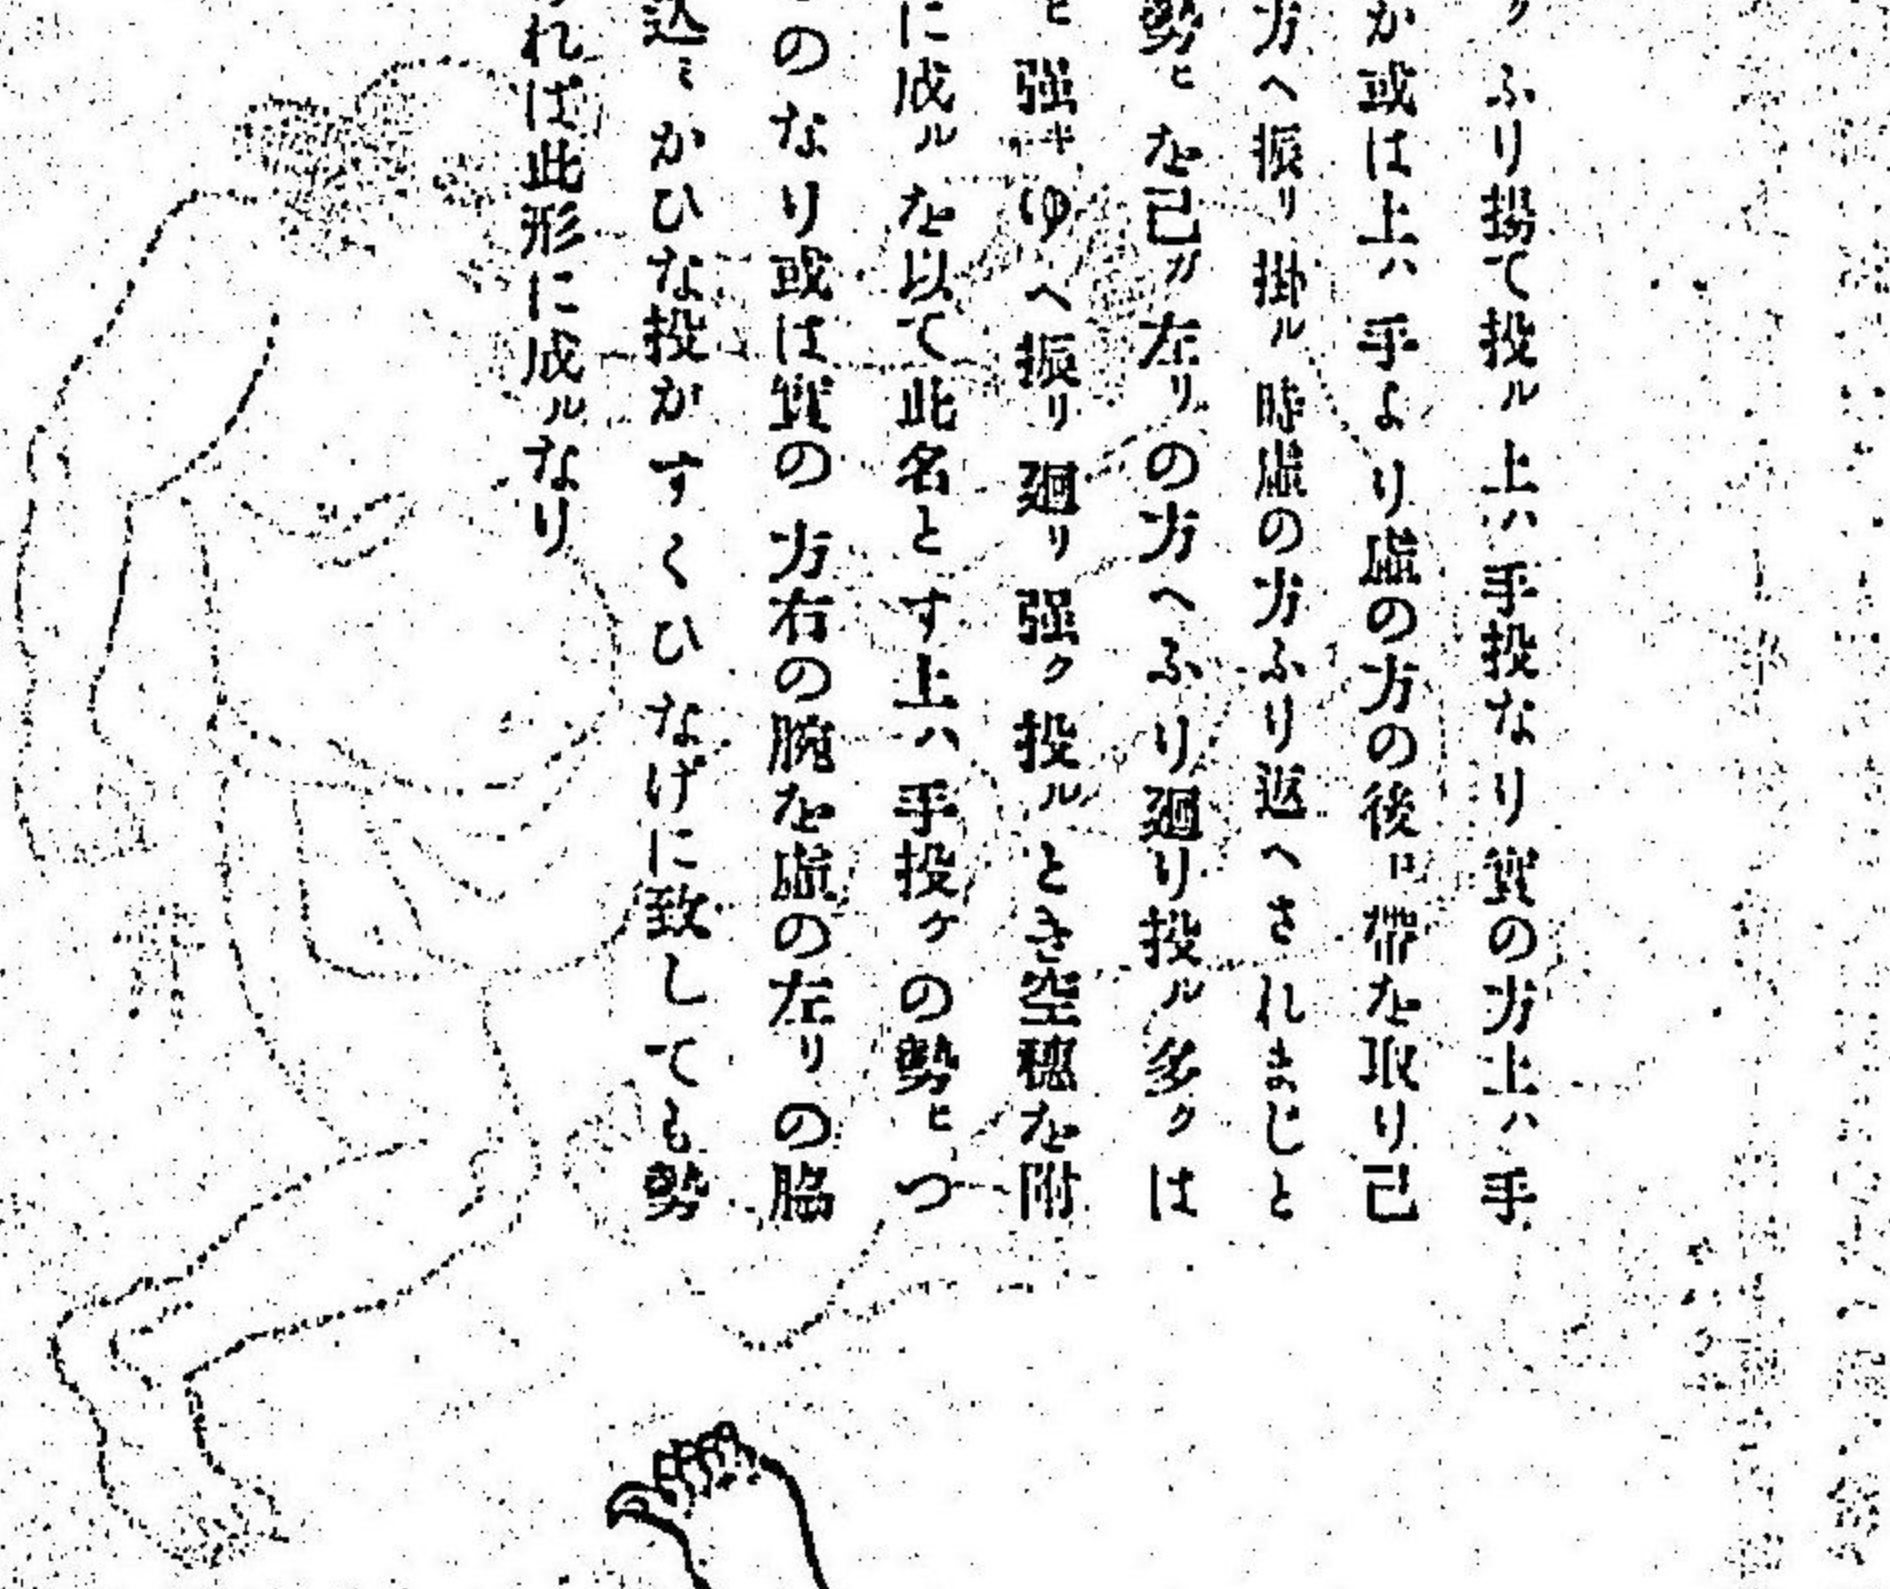 ク ふり揚て投ル上ハ手投なり實の方上ハ手
か或は上ハ手より虚の方の後ロ帯を取り己
方へ振リ掛ル時虚の方ふり返へされまじと
勢ヒを己ガ左リの方へふり廻り投ル多クは
ヒ強キゆへ振リ廻リ強ク投ルとき空穂を附
に成ルを以て此名とす上ハ手投ケの勢ヒつ
のなり或は實の方右の腕を虚の左リの脇
込ミかひな投かすくひなげに致しても勢
れば此形に成ルなり